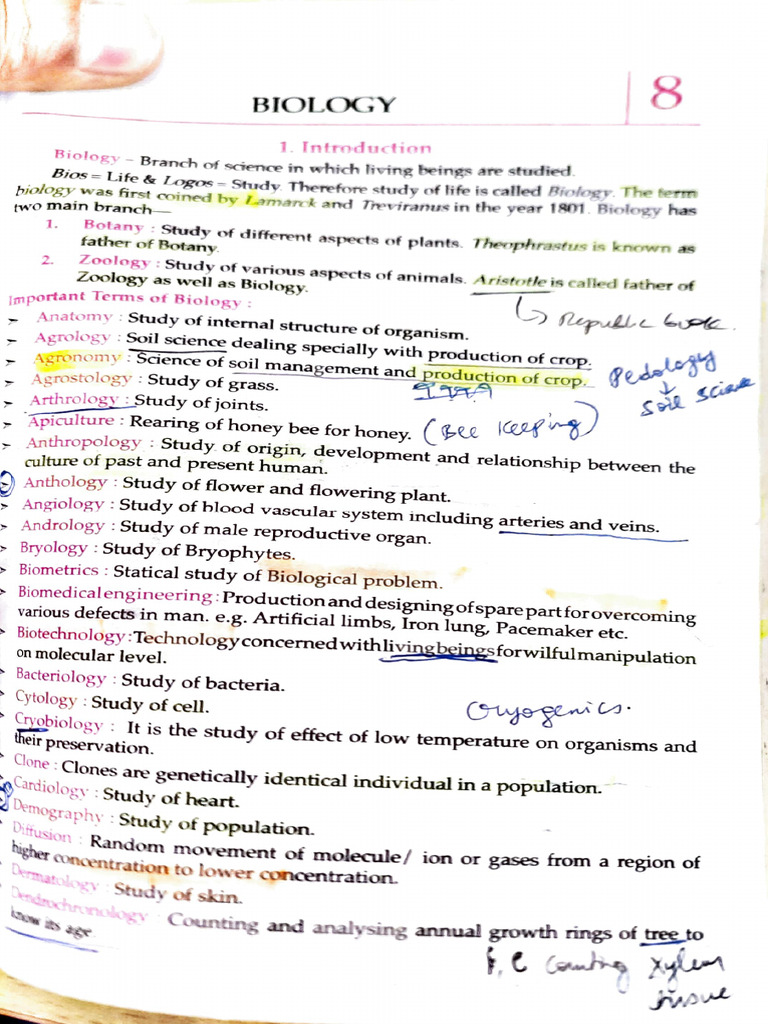 BIOLOGY
8
1. Introduction
Biology – Branch of science in which living beings are studied.
Bios = Life & Logos = Study. Therefore study of life is called Biology. The term
biology was first coined by Lamarck and Treviranus in the year 1801. Biology has
two main branch—
1. Botany : Study of different aspects of plants. Theophrastus is known as
father of Botany.
2. Zoology : Study of various aspects of animals. Aristotle is called father of
Zoology as well as Biology.
Republic book.
Important Terms of Biology :
➢ Anatomy : Study of internal structure of organism.
➢ Agrology : Soil science dealing specially with production of crop.
➢ Agronomy : Science of soil management and production of crop.
Pedology
↓
Soil Science
➢ Agrostology : Study of grass.
➢ Arthrology : Study of joints.
➢ Apiculture : Rearing of honey bee for honey. (Bee Keeping)
➢ Anthropology : Study of origin, development and relationship between the
culture of past and present human.
Anthology : Study of flower and flowering plant.
➢ Angiology : Study of blood vascular system including arteries and veins.
➢ Andrology : Study of male reproductive organ.
➢ Bryology : Study of Bryophytes.
➢ Biometrics : Statical study of Biological problem.
➢ Biomedical engineering : Production and designing of spare part for overcoming
various defects in man. e.g. Artificial limbs, Iron lung, Pacemaker etc.
➢ Biotechnology : Technology concerned with living beings for wilful manipulation
on molecular level.
Bacteriology : Study of bacteria.
Cytology : Study of cell.
Cryogenics.
Cryobiology : It is the study of effect of low temperature on organisms and
their preservation.
Clone : Clones are genetically identical individual in a population.
Cardiology : Study of heart.
Demography : Study of population.
Diffusion : Random movement of molecule/ ion or gases from a region of
higher concentration to lower concentration.
Dermatology : Study of skin.
Dendrochronology : Counting and analysing annual growth rings of tree to
know its age.
counting Xylem
tissue